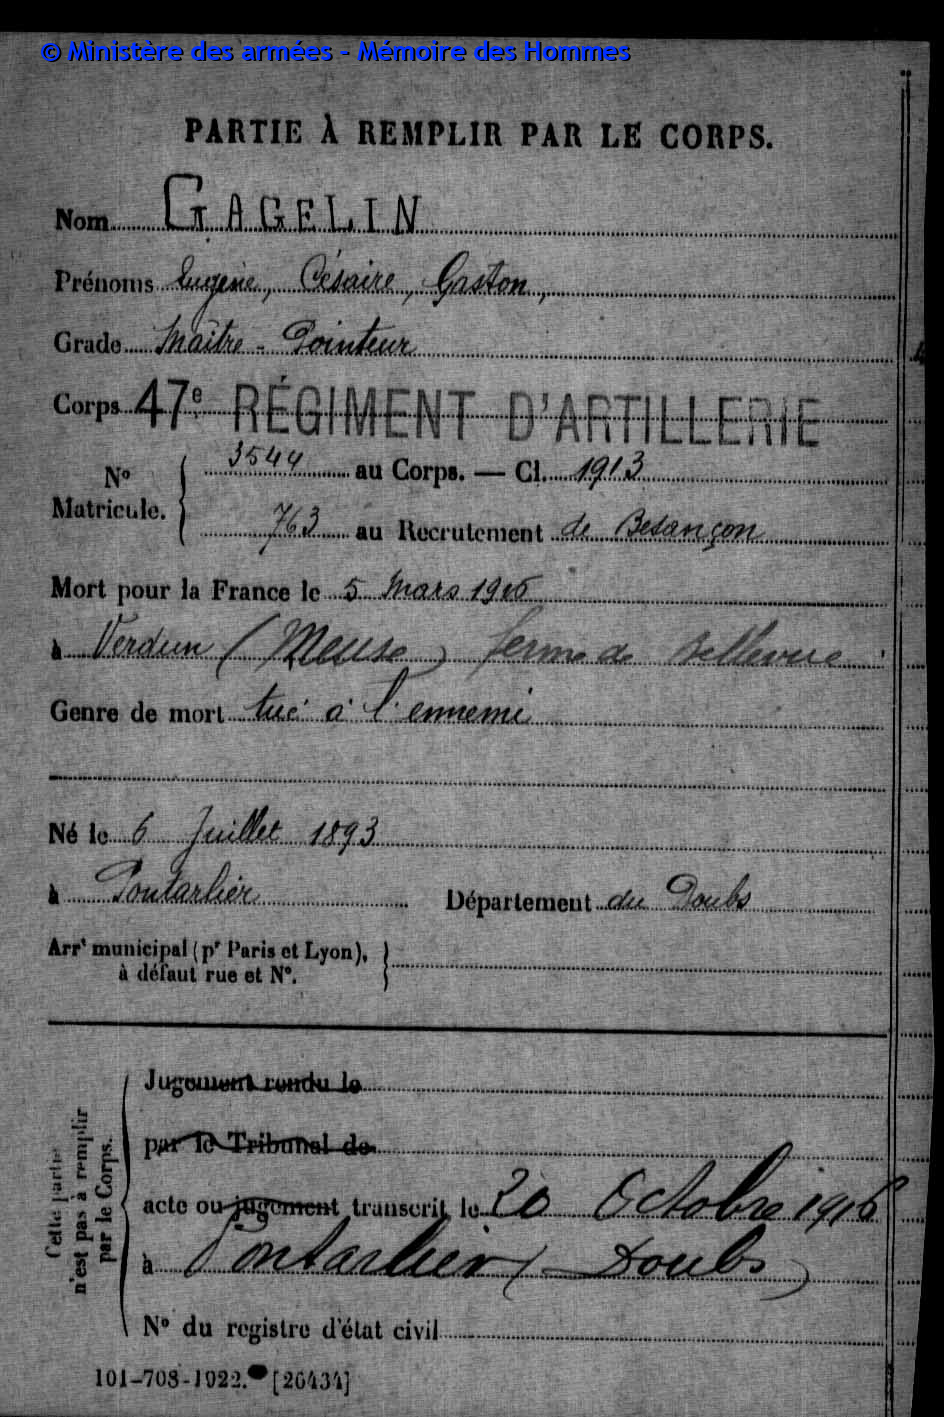 © Ministère des armées - Mémoire des Hommes
PARTIE À REMPLIR PAR LE CORPS.
Nom GAGELIN
Prénoms Eugène, Césaire, Gaston,
Grade Maître-Pointeur
Corps 47e RÉGIMENT D'ARTILLERIE
No Matricule. { 3544 au Corps. — Cl. 1913
763 au Recrutement de Besançon
Mort pour la France le 5 Mars 1916
à Verdun (Meuse) ferme de Bellevue
Genre de mort tué à l'ennemi
Né le 6 Juillet 1893
à Pontarlier Département du Doubs
Arrt municipal (pr Paris et Lyon),
à défaut rue et No.
Cette partie
n'est pas à remplir
par le Corps.
Jugement rendu le
par le Tribunal de
acte ou jugement transcrit le 20 Octobre 1916
à Pontarlier (Doubs)
No du registre d'état civil
101-708-1922. [26434]